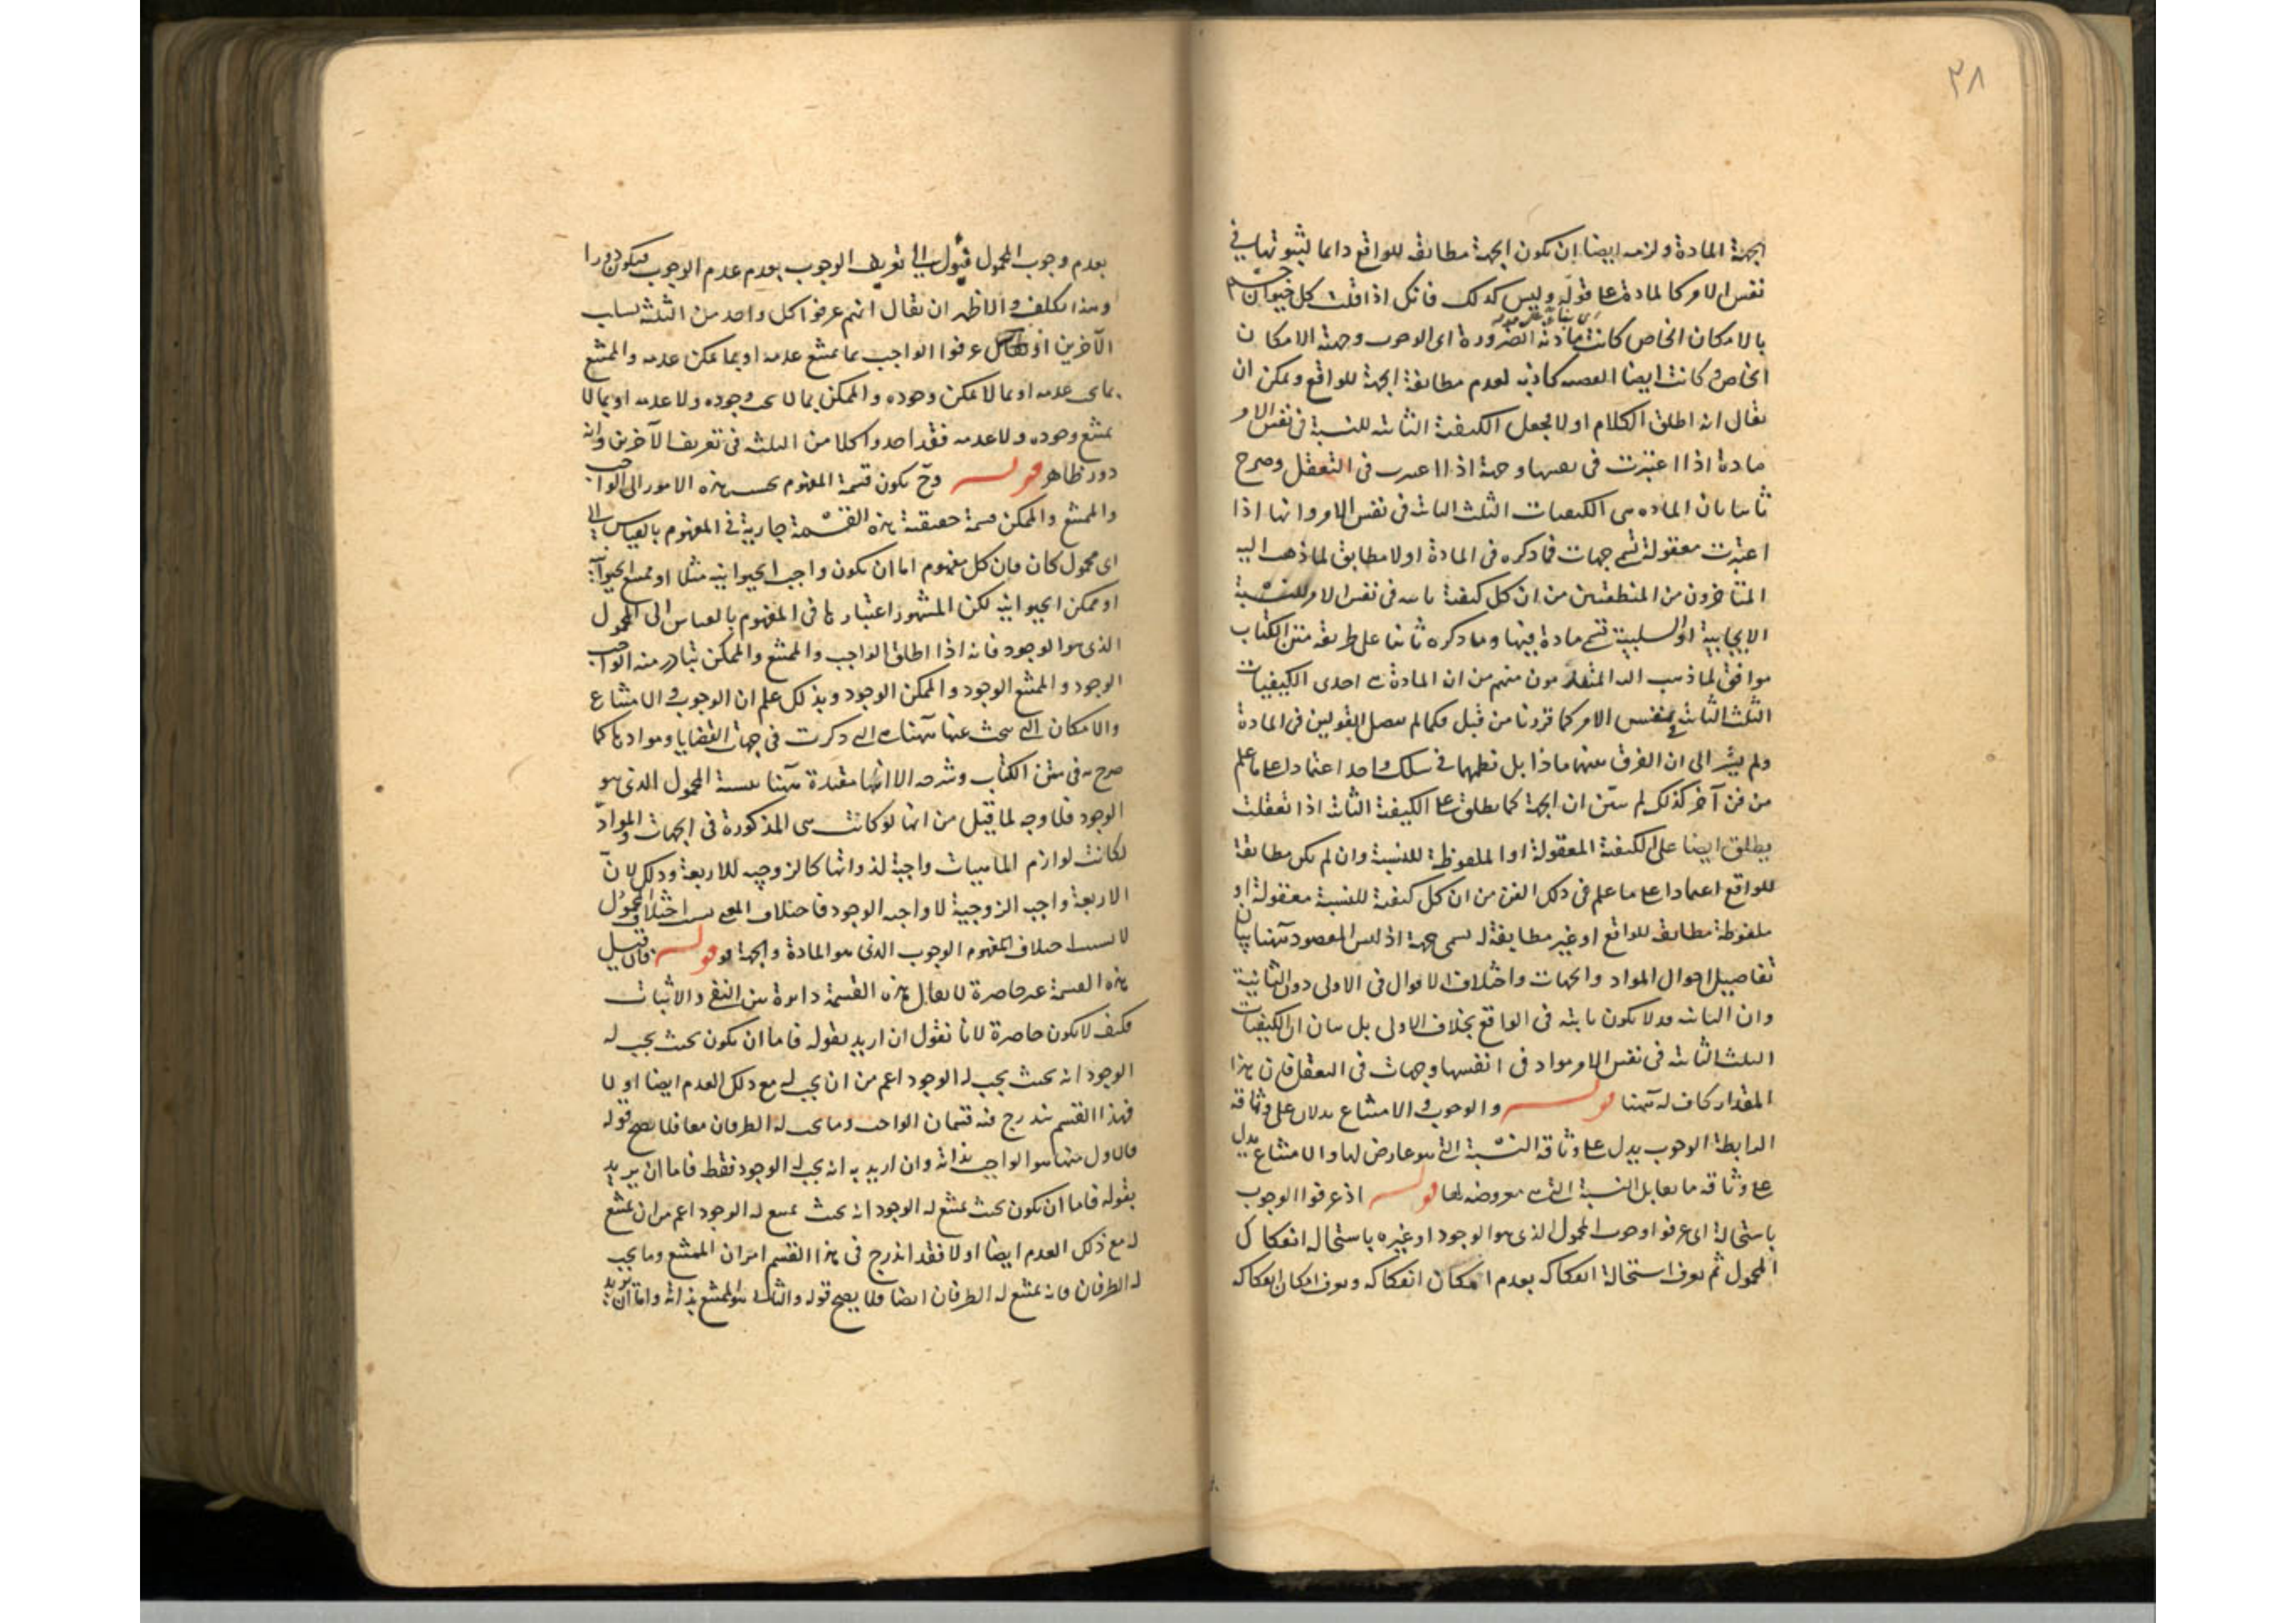 ٣٨
الجهة المادة ولزمه ايضا ان يكون الجهة مطابقة للواقع دائما لثبوتها في
نفس الامر كالمادة على قوله وليس كذلك فانك اذا قلت كل حيوان جسم
بالامكان الخاص كانت مادته الضرورة اى الوجوب وجهته الامكان
الخاص وكانت ايضا القضية كاذبة لعدم مطابقة الجهة للواقع ويمكن ان
يقال انه اطلق الكلام اولا بجعل الكيفية الثابتة للنسبة فى نفس الامر
مادة اذا اعتبرت فى نفسها وجهة اذا اعتبرت فى التعقل وصرح
ثانيا بان المادة هى الكيفيات الثلث الثابتة فى نفس الامر وانها اذا
اعتبرت معقولة تسمى جهات فما ذكره فى المادة اولا مطابق لما ذهب اليه
المتأخرون من المنطقيين من ان كل كيفية ثابتة فى نفس الامر للنسبة
الايجابية او السلبية تسمى مادة فيها وما ذكره ثانيا على طريقة متن الكتاب
موافق لما ذهب اليه المتقدمون منهم من ان المادة هى احدى الكيفيات
الثلث الثابتة فى نفس الامر كما قررنا من قبل فكما لم يفصل القولين فى المادة
ولم يشر الى ان الفرق بينهما ماذا بل نظمهما فى سلك واحد اعتمادا على ما علم
من فن آخر كذلك لم يبين ان الجهة كما يطلق على الكيفية الثابتة اذا تعقلت
يطلق ايضا على الكيفية المعقولة او الملفوظة للنسبة وان لم يكن مطابقة
للواقع اعتمادا على ما علم فى ذلك الفن من ان كل كيفية للنسبة معقولة او
ملفوظة مطابقة للواقع او غير مطابقة له يسمى جهة اذ ليس المقصود ههنا بيان
تفاصيل احوال المواد والجهات واختلاف الاقوال فى الاولى دون الثانية
وان الثانية قد لا يكون ثابتة فى الواقع بخلاف الاولى بل بيان ان الكيفيات
الثلث الثابتة فى نفس الامر مواد فى انفسها وجهات فى التعقل فان هذا
المقدار كاف له ههنا قوله والوجوب والامتناع يدلان على وثاقة
الرابطة الوجوب يدل على وثاقة النسبة التى هو عارض لها والامتناع يدل
على وثاقة ما يقابل النسبة التى هى معروضة لها قوله اذ عرفوا الوجوب
باستحالة اى عرفوا وجوب المحمول الذى هو الوجود او غيره باستحالة انفكاك
المحمول ثم يعرف استحالة انفكاكه بعدم امكان انفكاكه ويعرف امكان انفكاكه
بعدم وجوب المحمول فيؤل الى تعريف الوجوب بعدم عدم الوجوب فيكون دورا
وهذا تكلف والاظهر ان يقال انهم عرفوا كل واحد من الثلثة بسلب
الآخرين اذ عرفوا الواجب بما يمتنع عدمه او بما لا يمكن عدمه والممتنع
بما يجب عدمه او بما لا يمكن وجوده والممكن بما لا يجب وجوده ولا عدمه او بما لا
يمتنع وجوده ولا عدمه فقد اخذوا كلا من الثلثة فى تعريف الآخرين وانه
دور ظاهر قوله وح يكون قسمة المفهوم بحسب هذه الامور الى الواجب
والممتنع والممكن قسمة حقيقية هذه القسمة جارية فى المفهوم بالقياس الى
اى محمول كان فان كل مفهوم اما ان يكون واجب الحيوانية مثلا او ممتنع الحيوانية
او ممكن الحيوانية لكن المشهور اعتبارها فى المفهوم بالقياس الى المحمول
الذى هو الوجود فانه اذا اطلق الواجب والممتنع والممكن يتبادر منه الواجب
الوجود والممتنع الوجود والممكن الوجود وبذلك علم ان الوجوب والامتناع
والامكان التى يبحث عنها ههنا هى التى ذكرت فى جهات القضايا وموادها كما
صرح به فى متن الكتاب وشرحه الا انها مقيدة ههنا بنسبة المحمول الذى هو
الوجود فلا وجه لما قيل من انها لو كانت هى المذكورة فى الجهات والمواد
لكانت لوازم الماهيات واجبة لذواتها كالزوجية للاربعة وذلك لان
الاربعة واجب الزوجية لا واجبة الوجود فاختلاف المعنى بسبب اختلاف المحمول
لا بسبب اختلاف مفهوم الوجوب الذى هو المادة والجهة قوله فان قيل
هذه القسمة غير حاصرة لا يقال هذه القسمة دائرة بين النفى والاثبات
فكيف لا يكون حاصرة لانا نقول ان اريد بقوله فاما ان يكون بحيث يجب له
الوجود انه بحيث يجب له الوجود اعم من ان يجب له مع ذلك العدم ايضا او لا
فهذا القسم يندرج فيه قسمان الواجب وما يجب له الطرفان معا فلا يصح قوله
فالاول منها هو الواجب بذاته وان اريد به انه يجب له الوجود فقط فاما ان يريد
بقوله فاما ان يكون بحيث يمتنع له الوجود انه بحيث يمتنع له الوجود اعم من ان يمتنع
له مع ذلك العدم ايضا او لا فقد اندرج فى هذا القسم امران الممتنع وما يجب
له الطرفان فانه يمتنع له الطرفان ايضا فلا يصح قوله والثانى هو الممتنع بذاته واما ان يريد